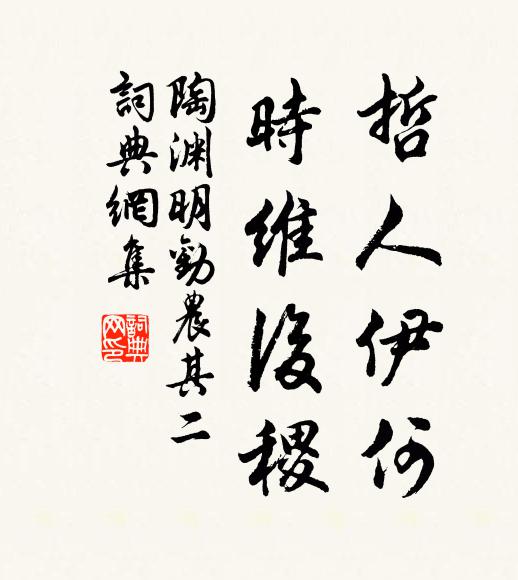 哲人伊何
時維後稷
陶渊明勸農其二
詞典網集
詞典网印